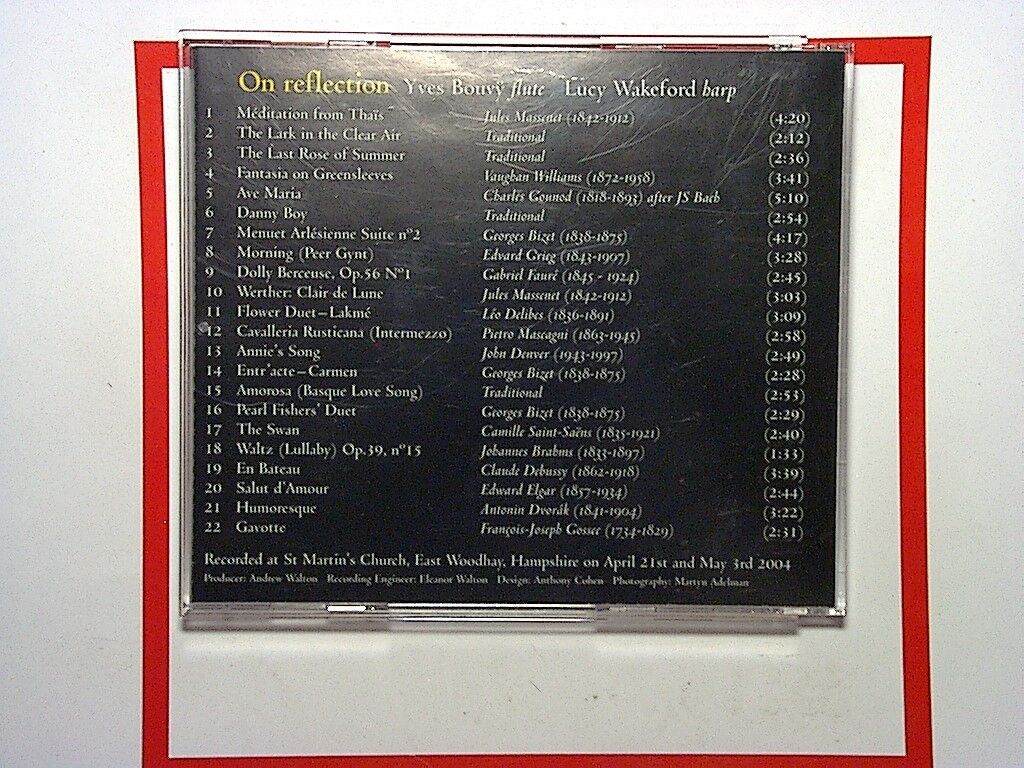 On reflection Yves Bouvÿ flute Lucy Wakeford harp
1 Méditation from Thaïs Jules Massenet (1842-1912) (4:20)
2 The Lark in the Clear Air Traditional (2:12)
3 The Last Rose of Summer Traditional (2:36)
4 Fantasia on Greensleeves Vaughan Williams (1872-1958) (3:41)
5 Ave Maria Charles Gounod (1818-1893) after JS Bach (5:10)
6 Danny Boy Traditional (2:54)
7 Menuet Arlésienne Suite nº2 Georges Bizet (1838-1875) (4:17)
8 Morning (Peer Gynt) Edvard Grieg (1843-1907) (3:28)
9 Dolly Berceuse, Op.56 Nº1 Gabriel Fauré (1845 - 1924) (2:45)
10 Werther: Clair de Lune Jules Massenet (1842-1912) (3:03)
11 Flower Duet–Lakmé Léo Delibes (1836-1891) (3:09)
12 Cavalleria Rusticana (Intermezzo) Pietro Mascagni (1863-1945) (2:58)
13 Annie's Song John Denver (1943-1997) (2:49)
14 Entr'acte–Carmen Georges Bizet (1838-1875) (2:28)
15 Amorosa (Basque Love Song) Traditional (2:53)
16 Pearl Fishers' Duet Georges Bizet (1838-1875) (2:29)
17 The Swan Camille Saint-Saëns (1835-1921) (2:40)
18 Waltz (Lullaby) Op.39, nº15 Johannes Brahms (1833-1897) (1:33)
19 En Bateau Claude Debussy (1862-1918) (3:39)
20 Salut d'Amour Edward Elgar (1857-1934) (2:44)
21 Humoresque Antonin Dvorák (1841-1904) (3:22)
22 Gavotte François-Joseph Gossec (1734-1829) (2:31)
Recorded at St Martin's Church, East Woodhay, Hampshire on April 21st and May 3rd 2004
Producer: Andrew Walton Recording Engineer: Eleanor Walton Design: Anthony Cohen Photography: Martyn Adelman